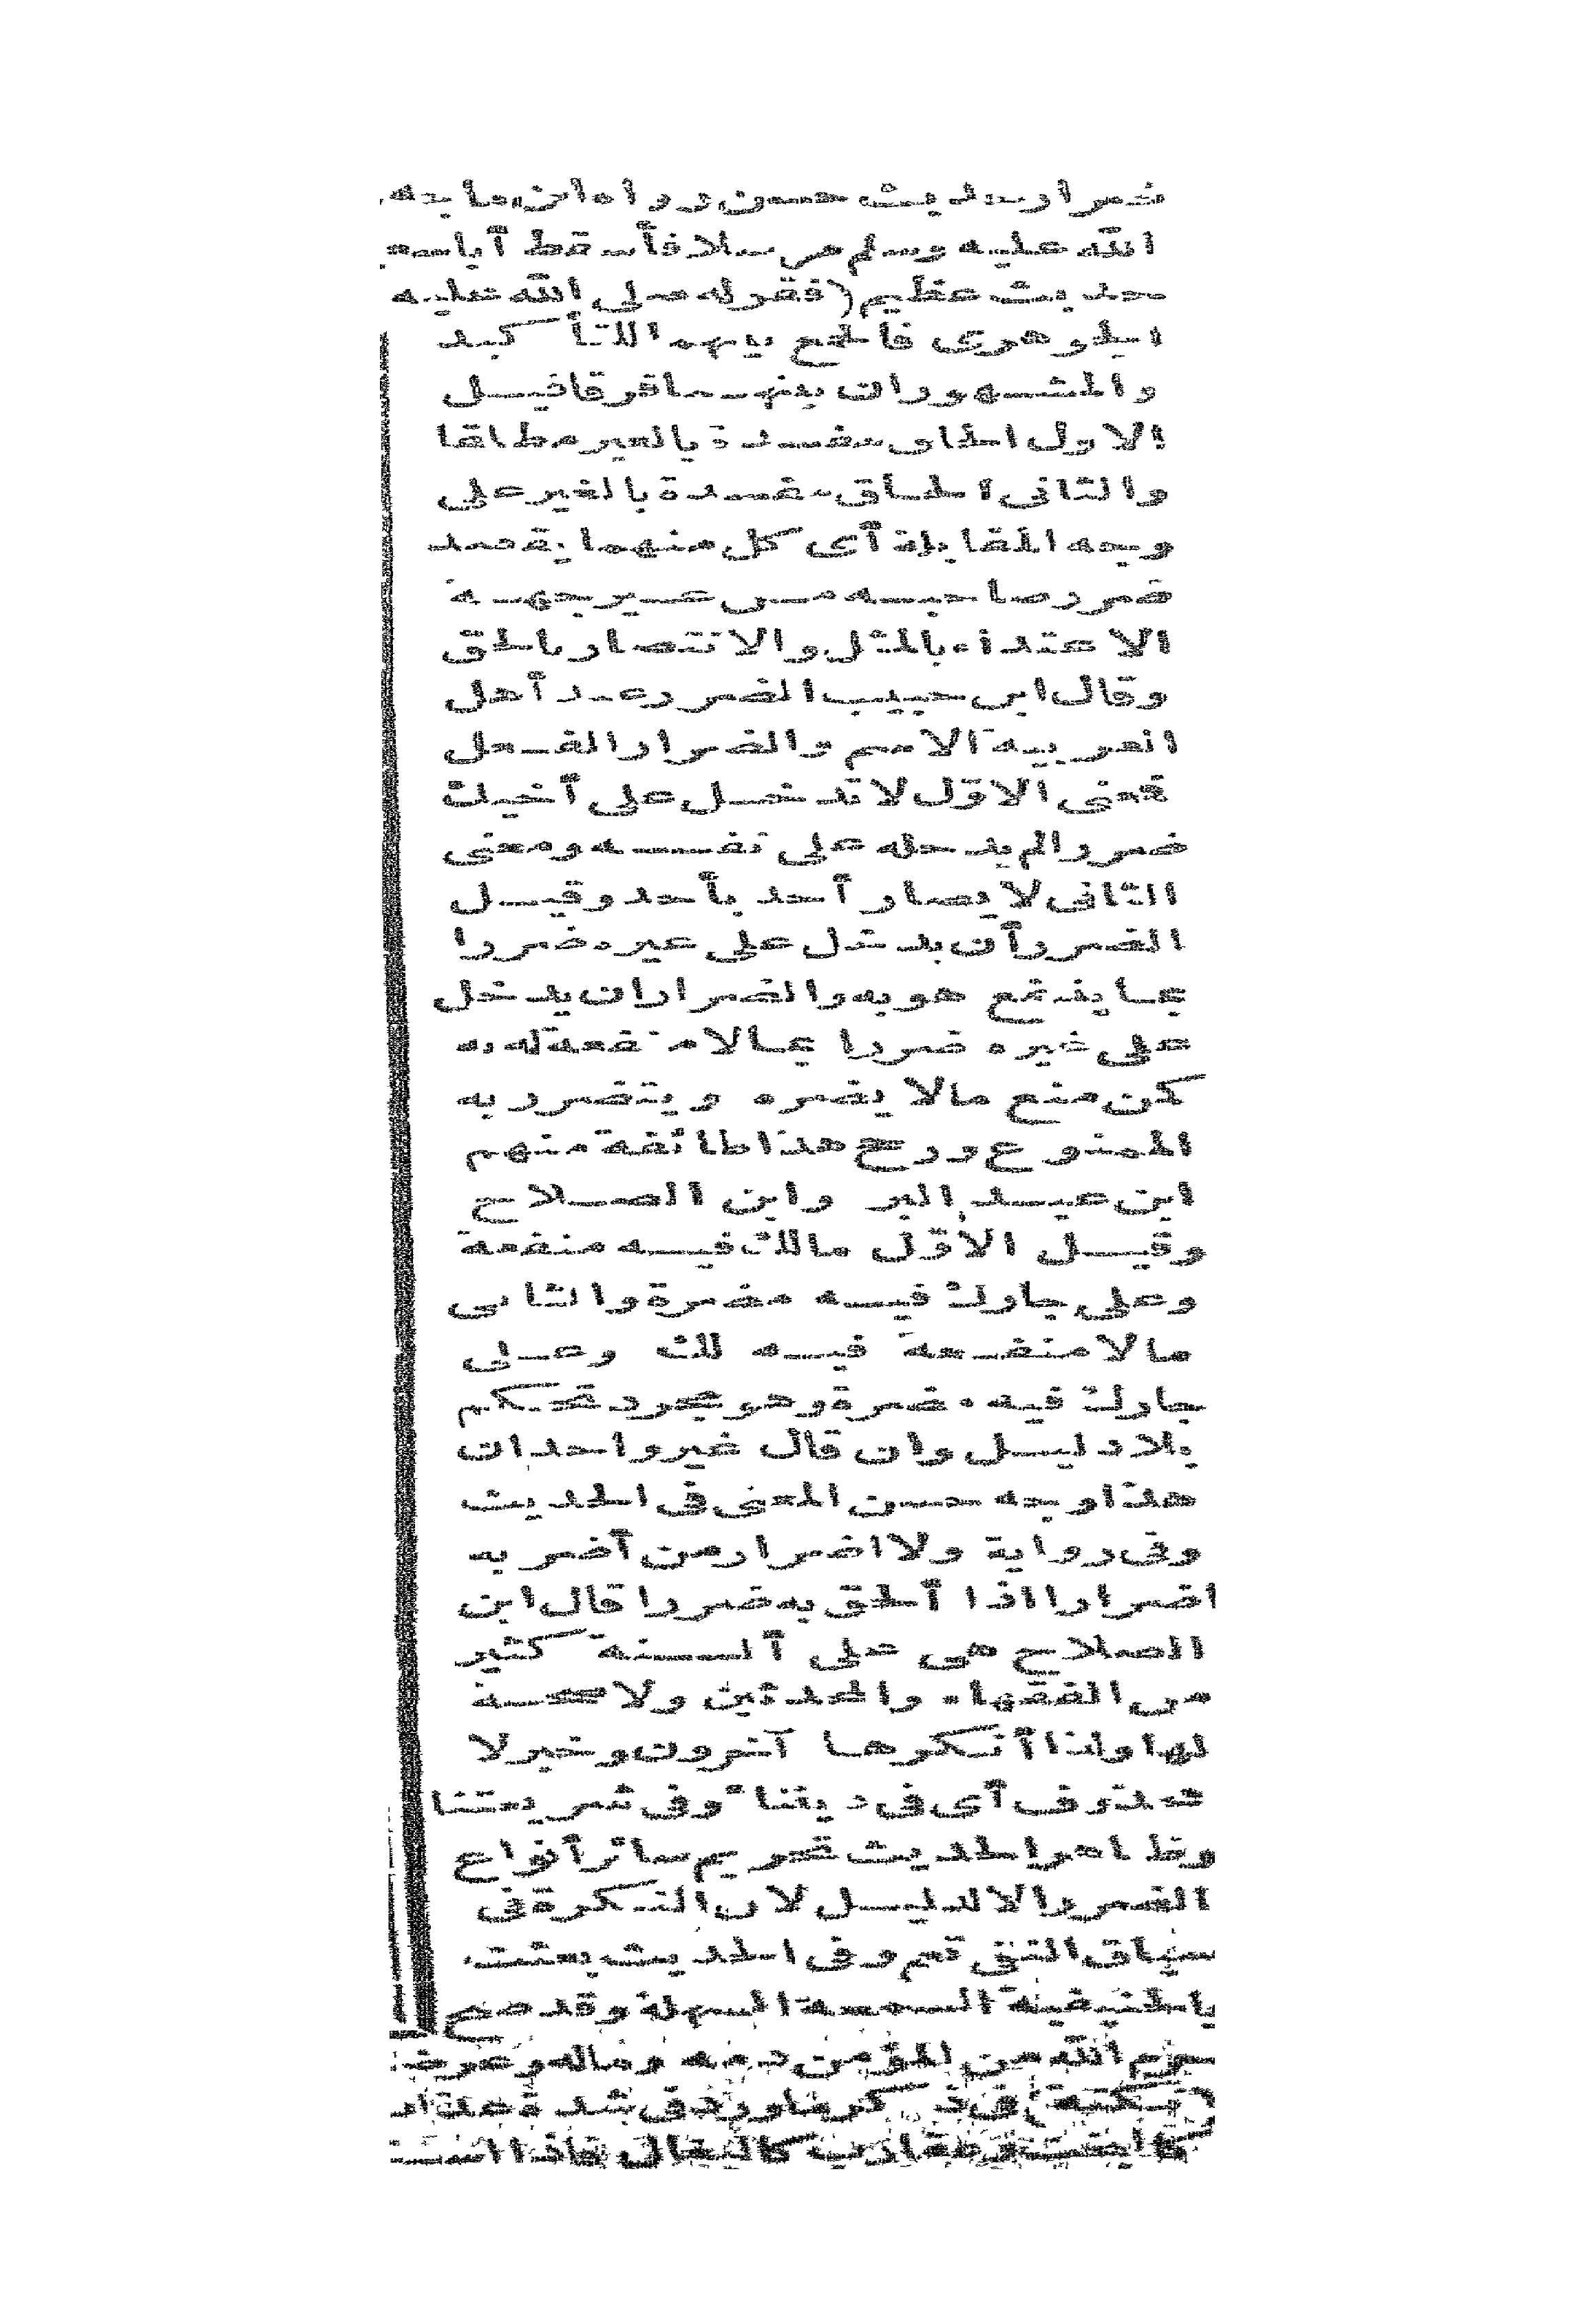 ضرار حديث حسن رواه ابن ماجه
الله عليه وسلم مرسلا فأسقط أباسعيد
حديث عظيم (فقوله صلى الله عليه
الجوهرى فالجمع بينهما للتأكيد
والمشهوران بينهما فرقا فقيل
الاول الحاق مفسدة بالغير مطلقا
والثانى الحاق مفسدة بالغير على
وجه المقابلة أى كل منهما يقصد
ضرر صاحبه من غير جهة
الاعتداء بالمثل والانتصار بالحق
وقال ابن حبيب الضرر عند أهل
العربية الاسم والضرار الفعل
فمعنى الاوّل لا تدخل على أخيك
ضررا لم يدخله على نفسه ومعنى
الثانى لا يضار أحد بأحد وقيل
الضرر أن يدخل على غيره ضررا
بما ينتفع هو به والضراران يدخل
على غيره ضررا بمالا منفعة له به
كمن منع مالا يضره ويتضرر به
الممنوع ورجح هذا طائفة منهم
ابن عبد البر وابن الصلاح
وقيل الاوّل مالك فيه منفعة
وعلى جارك فيه مضرة والثانى
مالا منفعة فيه لك وعلى
جارك فيه مضرة وهو مجرد تحكم
بلا دليل وان قال غير واحد ان
هذا وجه حسن المعنى فى الحديث
وفى رواية ولا اضرار من أضر به
اضرارا اذا ألحق به ضررا قال ابن
الصلاح هى على ألسنة كثير
من الفقهاء والمحدثين ولا صحة
لها ولذا أنكرها آخرون وخبر لا
محذوف أى فى ديننا أوفى شريعتنا
وظاهر الحديث تحريم سائر أنواع
الضرر الا لدليل لان النكرة فى
سياق النفى تعم وفى الحديث بعثت
بالحنيفية السمحة السهلة وقد صح
حرم الله من المؤمن دمه وماله وعرضه
فى ذكر ماورد فى شدة
كالبغال فاذا